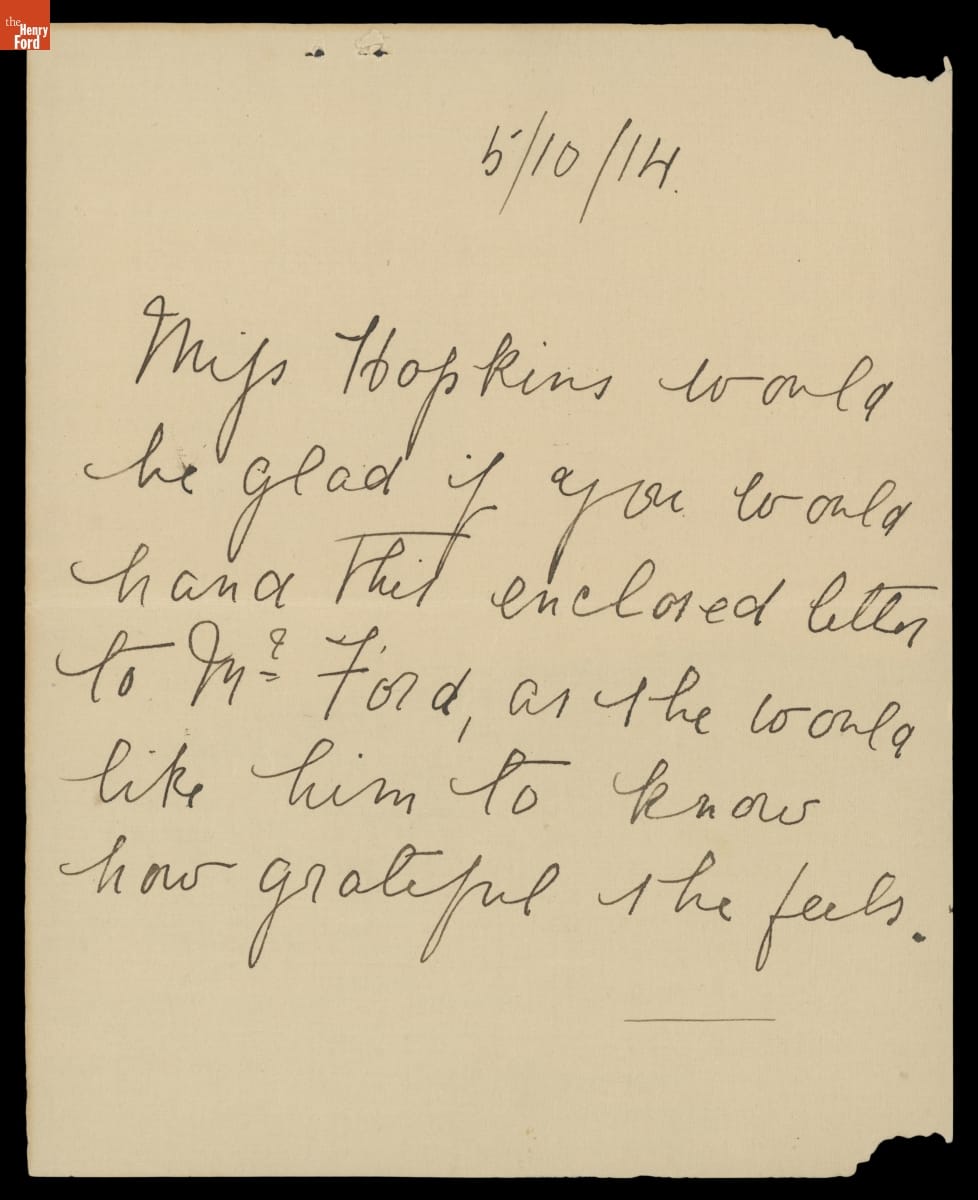 the
Henry
Ford
5/10/14.
Miss Hopkins would
be glad if you would
hand this enclosed letter
to Mr. Ford, as she would
like him to know
how grateful she feels.